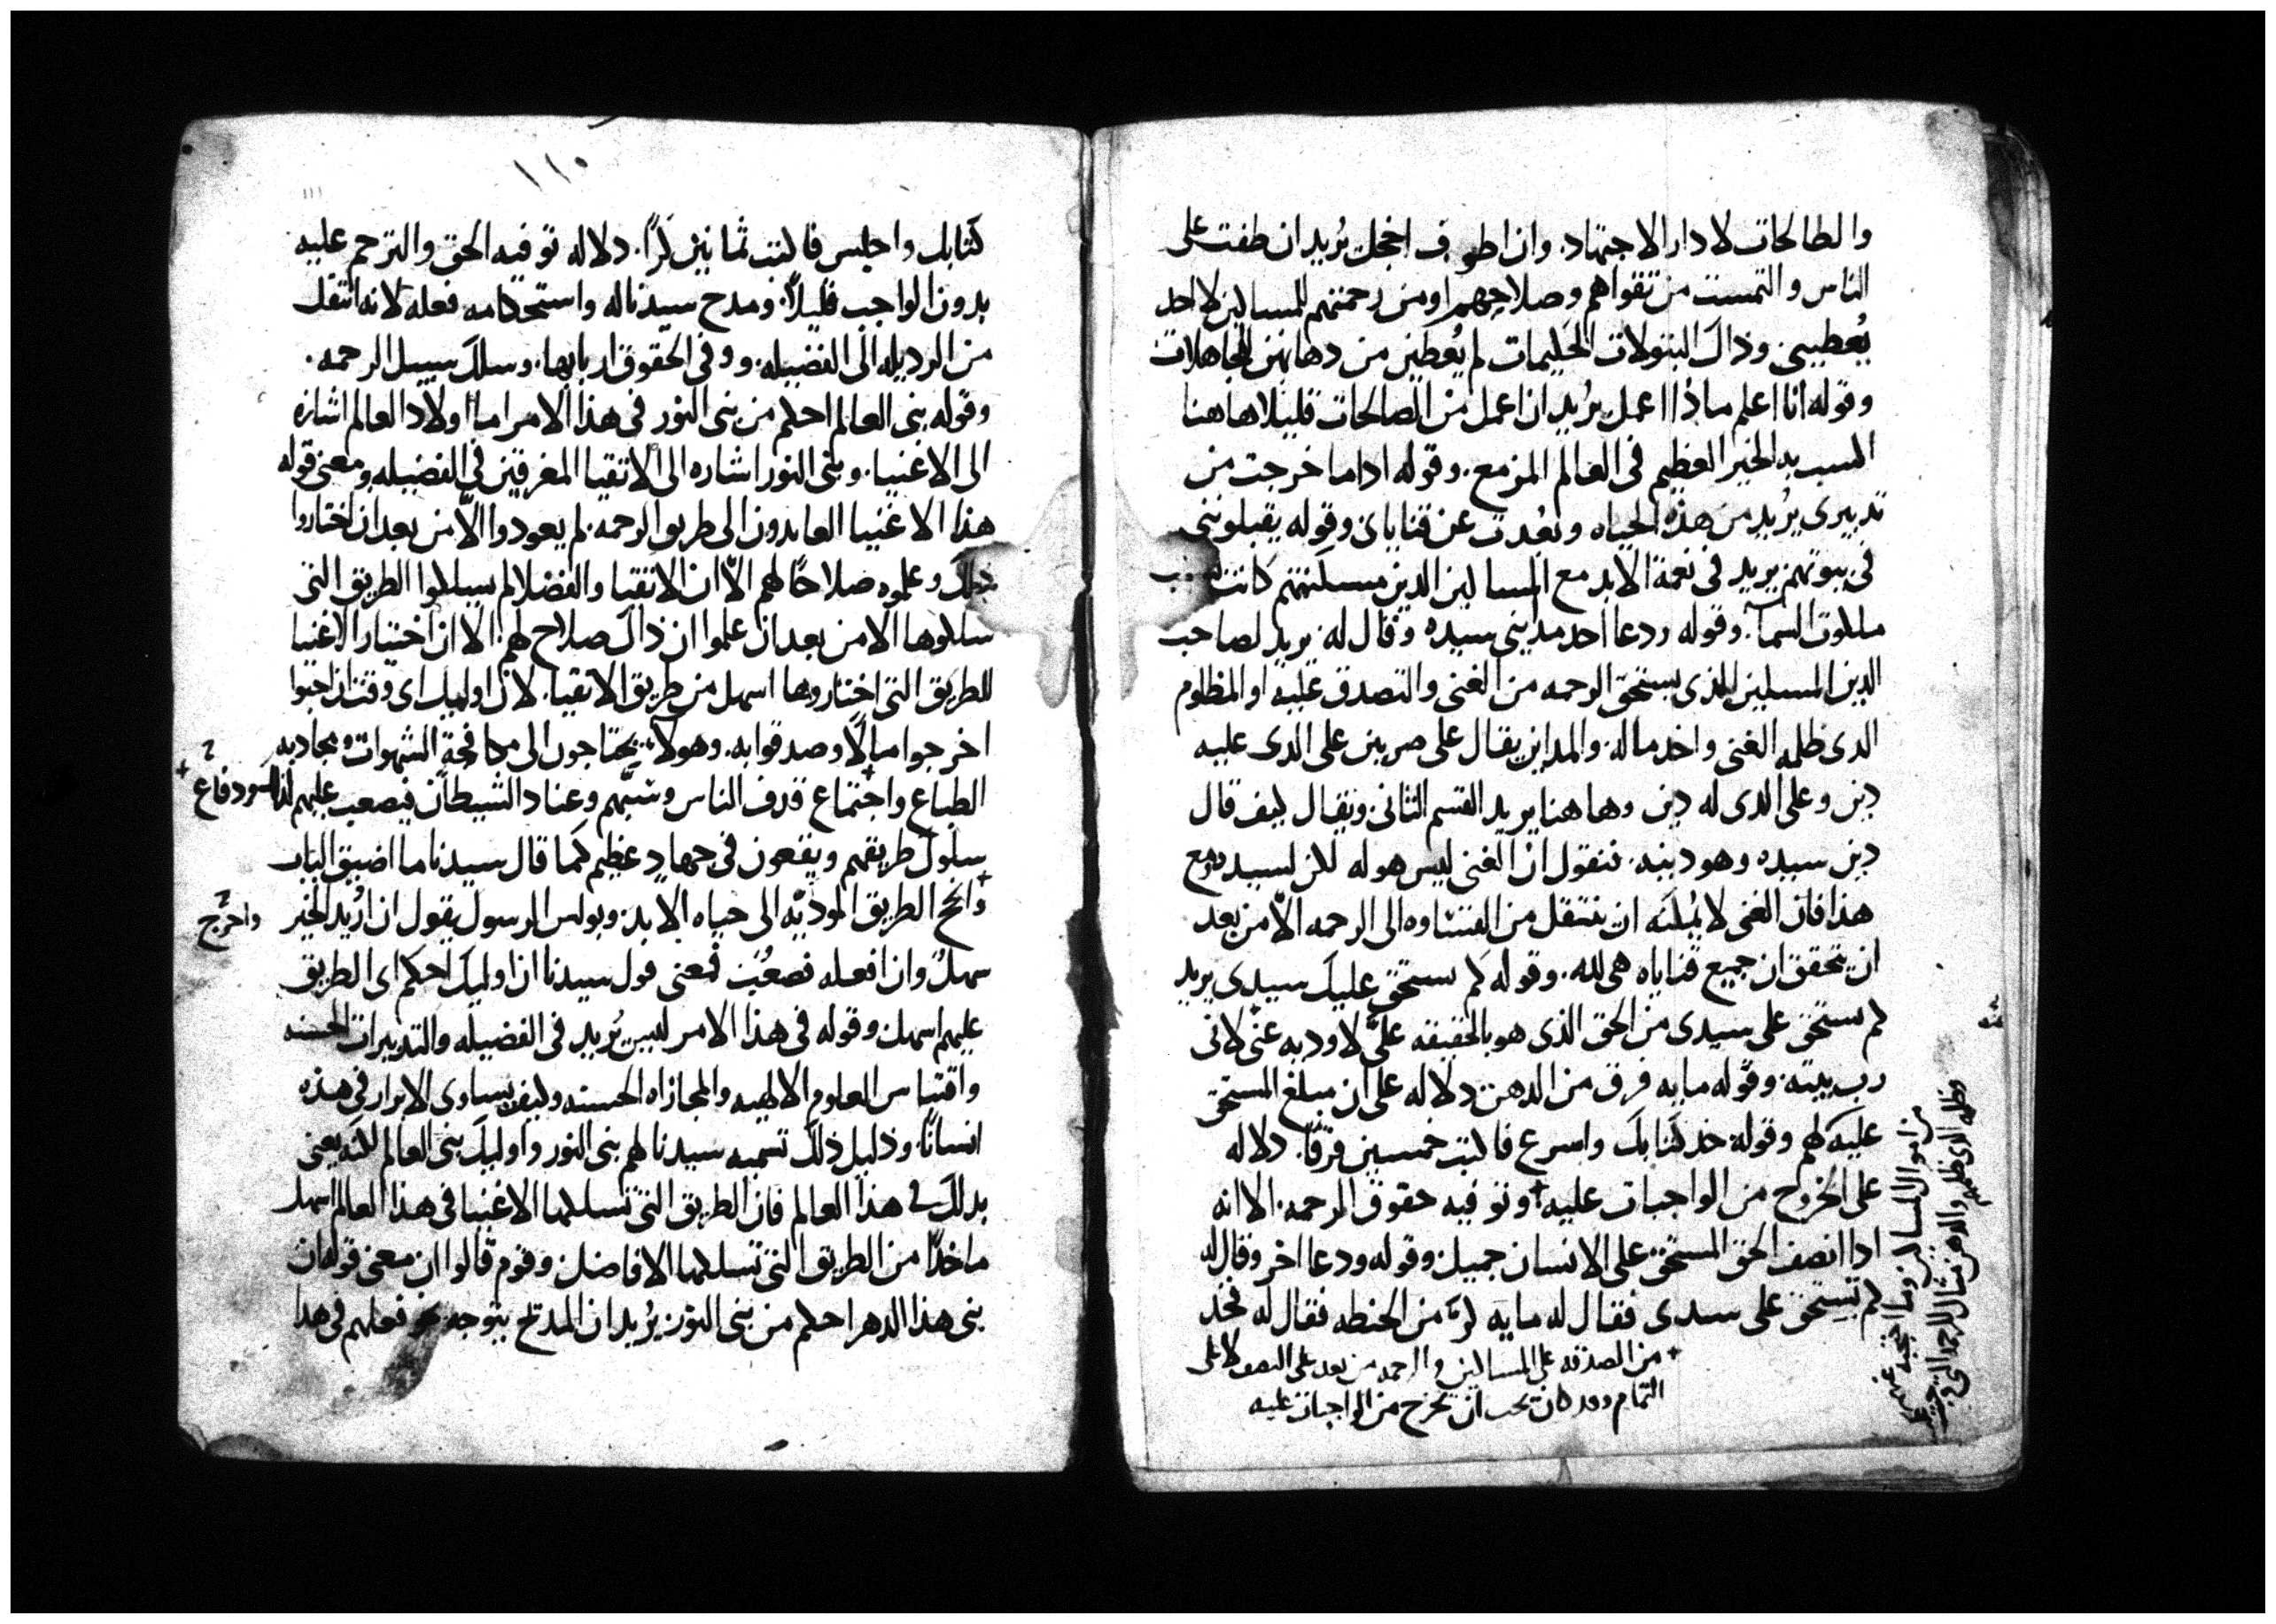 والطالحات لا دار الاجتهاد. وان اطوف اخجل يُريد ان طفت على
الناس والتمست من تقواهم وصلاحهم او من رحمتهم للمساكين لا احد
يُعطيني. وذاك البتولات الحكيمات لم يُعطين من دهانهن للجاهلات
وقوله انا اعلم ماذا اعمل يُريد ان اعمل من الصالحات قليلا هاهنا
الخير العظيم في العالم المزمع. وقوله اداما خرجت من
تدبيري يُريد من هذه الحياه وبعُدت عن قناياي وقوله يقبلونني
في بيوتهم يريد في نعمة الابد مع المساكين الدين مسكنتهم كانت
ملكوت السماء. وقوله ودعا احد مدايني سيده وقال له يريد لصاحب
الدين المسكين الذي يستحق الرحمه من الغنى والتصدق عليه او المظلوم
الدى ظلمه الغني واخد ماله. والمداين يقال على ضربين على الدى عليه
دين وعلى الدى له دين وهاهنا يريد القسم الثاني ويقال كيف قال
دين سيده وهو دينه. فنقول ان الغنى ليس هو له لكن لسيده ومع
هذا فان الغنى لا يُمكنه ان ينتقل من القساوه الى الرحمه الّا من بعد
ان يتحقق ان جميع قناياه هى لله. وقوله كم يستحق عليك سيدى يريد
كم يستحق على سيدى من الحق الذى هو بالحقيقه علىَّ لاوديه عنّى لانى
رب بيته. وقوله مايه فرق من الدهن دلاله على ان مبلغ المستحق
عليه لهم وقوله خد كتابك واسرع فاكتب خمسين فرقًا. دلاله
على الخروج من الواجبات عليه+ وتوفيه حقوق الرحمه. الا انه
اداانصف الحق المستحق على الانسان جميل وقوله ودعا اخر وقال له
كم تستحق على سيدى فقال له مايه كرّ من الحنطه فقال له فخد
+ من الصدقه على المساكين والرحمه من بعد على النصف لا على
التمام وقد كان يجب ان يخرج من الواجبات عليه
من اموال المساكين وما اجتبه عنهم
وظلمه الدى ظلمهم والدهن مثال للرحمه التى تجب على
١١٠
كتابك واجلس فاكتب ثمانين كرًا. دلاله توفيه الحق والترحم عليه
بدون الواجب قليلًا. ومدح سيدنا له واستحكامه فعله لانه انتقل
من الرديله الى الفضيله. ووفى الحقوق اربابها. وسلك سبيل الرحمه.
وقوله بني العالم احكم من بنى النور فى هذا الامر اما اولاد العالم اشاره
الى الاغنيا. وبنى النور اشاره الى الاتقيا المغرقين في الفضيله ومعنى قوله
هذا الاغنيا العايدون الى طريق الرحمه. لم يعودوا الّا من بعد ان اختاروا
ذلك وعلموه صلاحًا لهم الّا ان الاتقيا والفضلا لم يسلكوا الطريق التى
سلكوها الا من بعد ان علموا ان ذاك صلاح لهم. الا ان اختيار الاغنيا
للطريق التى اختاروها اسهل من طريق الاتقيا. لان اوليك اى وقت احبوا
اخرجوا مالًا وصدقوا به. وهولاء يحتاجون الى مكافحة الشهوات ومجاذبه
الطباع واحتماع+ قدف الناس وشتمهم وعناد الشيطان فيصعب عليهم
سلوك طريقهم ويقعون في جهادٍ عظيم كما قال سيدنا ما اضيق الباب
+وانحج الطريق المودّيه الى حياه الابد. وبولس الرسول يقول ان اُريد الخير
سهلٌ وان افعله فصعُب فمعنى قول سيدنا ان اوليك احكم اى الطريق
عليهم اسهل. وقوله فى هذا الامر ليس يُريد في الفضيله والتدبيرات الحسنه
واقتباس العلوم الالهيه والمجازاه الحسنه وكيف يساوى الابرار في هذه
انسانًا. ودليل ذلك تسميه سيدنا لهم بنى النور واوليك بنى العالم لكنه يعنى
بدلك في هذا العالم فان الطريق التى تسلكها الاغنيا في هذا العالم اسهل
ماخذًا من الطريق التى تسلكها الافاضل. وقوم قالوا ان معنى قوله ان
بنى هذا الدهر احكم من بنى النور يُريد ان المدح يتوجه نحو فعلهم في هدا
دفاع +
واحرج